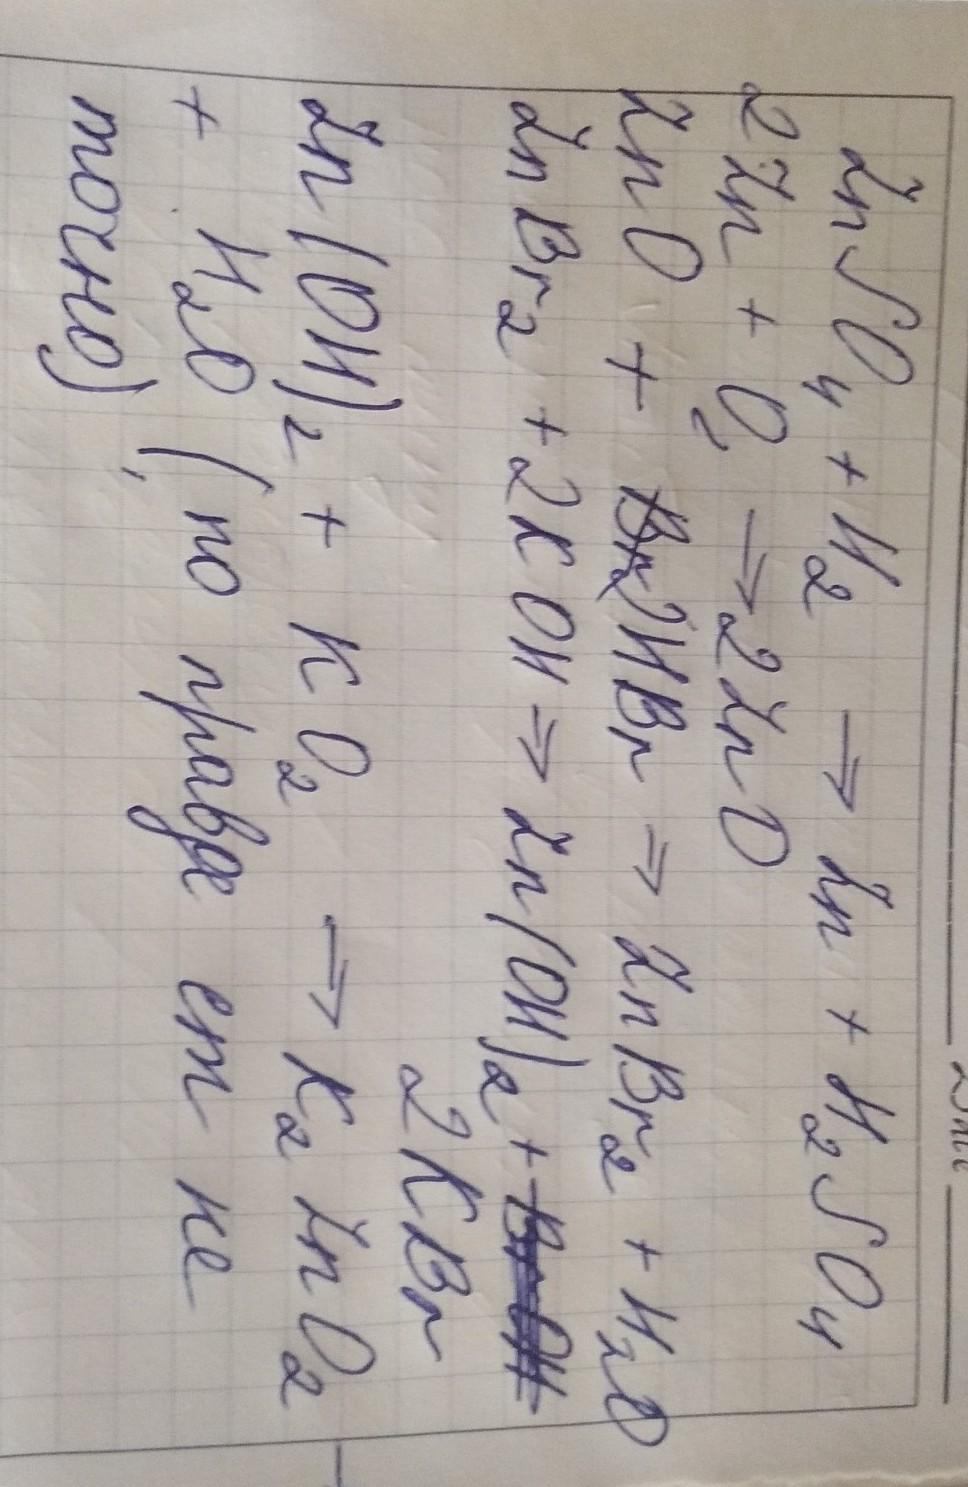 ZnSO₄ + H₂ → Zn + H₂SO₄
2Zn + O₂ → 2ZnO
ZnO + 2HBr ⇒ ZnBr₂ + H₂O
ZnBr₂ + 2KOH ⇒ Zn(OH)₂ +
2KBr
Zn(OH)₂ + KO₂ → K₂ZnO₂
+ H₂O (по правде ст не
точно)